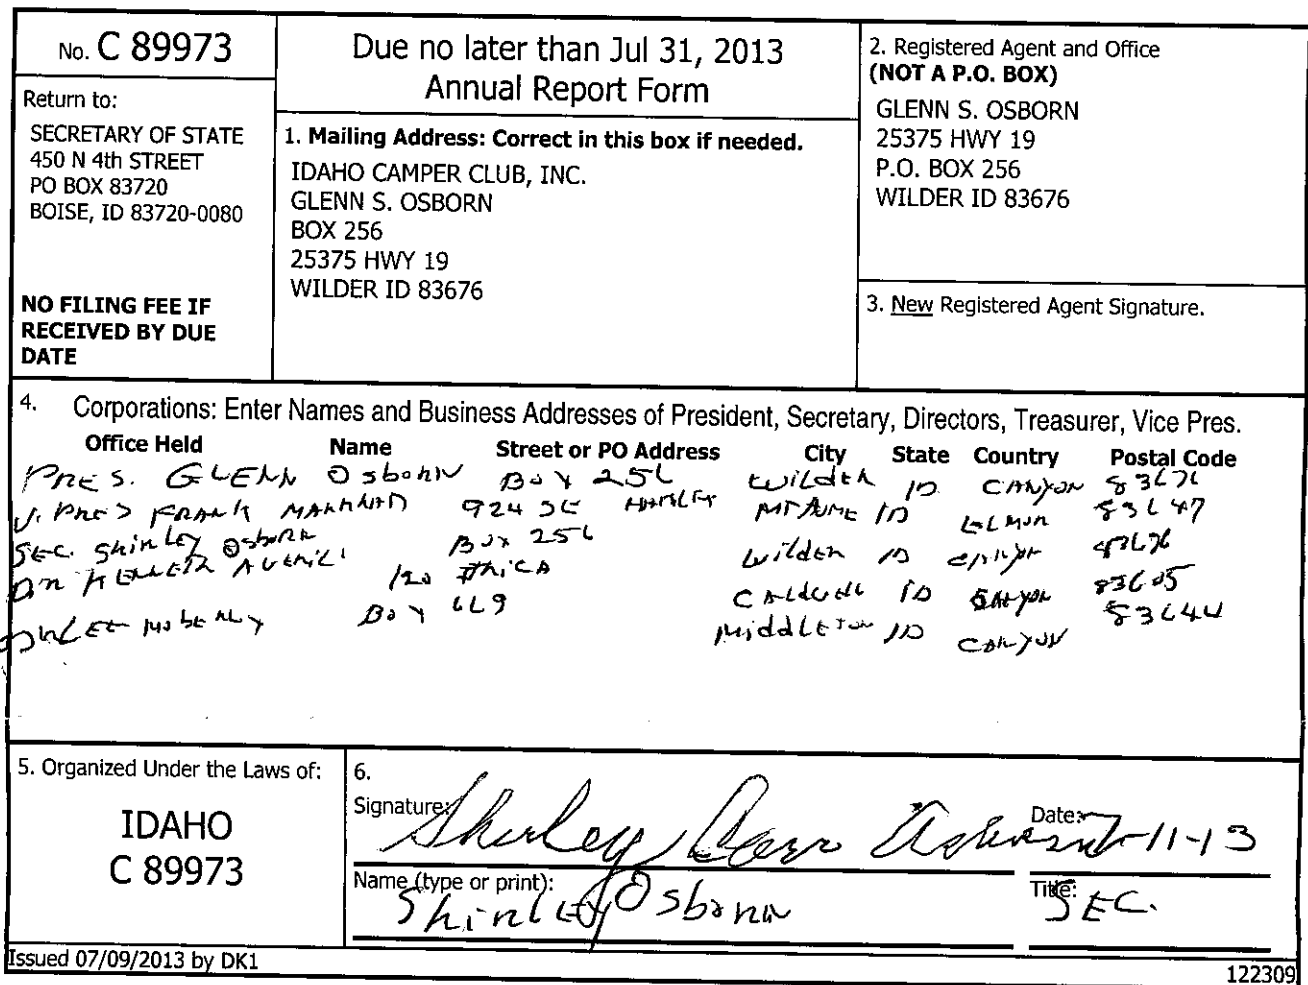 No. C 89973
Return to:
SECRETARY OF STATE
450 N 4th STREET
PO BOX 83720
BOISE, ID 83720-0080
NO FILING FEE IF
RECEIVED BY DUE
DATE
Due no later than Jul 31, 2013
Annual Report Form
1. Mailing Address: Correct in this box if needed.
IDAHO CAMPER CLUB, INC.
GLENN S. OSBORN
BOX 256
25375 HWY 19
WILDER ID 83676
2. Registered Agent and Office
(NOT A P.O. BOX)
GLENN S. OSBORN
25375 HWY 19
P.O. BOX 256
WILDER ID 83676
3. New Registered Agent Signature.
4. Corporations: Enter Names and Business Addresses of President, Secretary, Directors, Treasurer, Vice Pres.
Office Held Name Street or PO Address City State Country Postal Code
PRES. GLENN Osborn Box 256 Wilder ID CANYON 83676
V. PRES FRANK 924 SE ID 83647
SEC. Shirley Osborn Box 256 Wilder ID CANYON 83676
120 CALDWELL ID CANYON 83605
Box 669 Middleton ID CANYON 83644
5. Organized Under the Laws of:
IDAHO
C 89973
6.
Signature: Shirley Osborn
Date: 7-11-13
Name (type or print): Shirley Osborn
Title: SEC.
Issued 07/09/2013 by DK1
122309